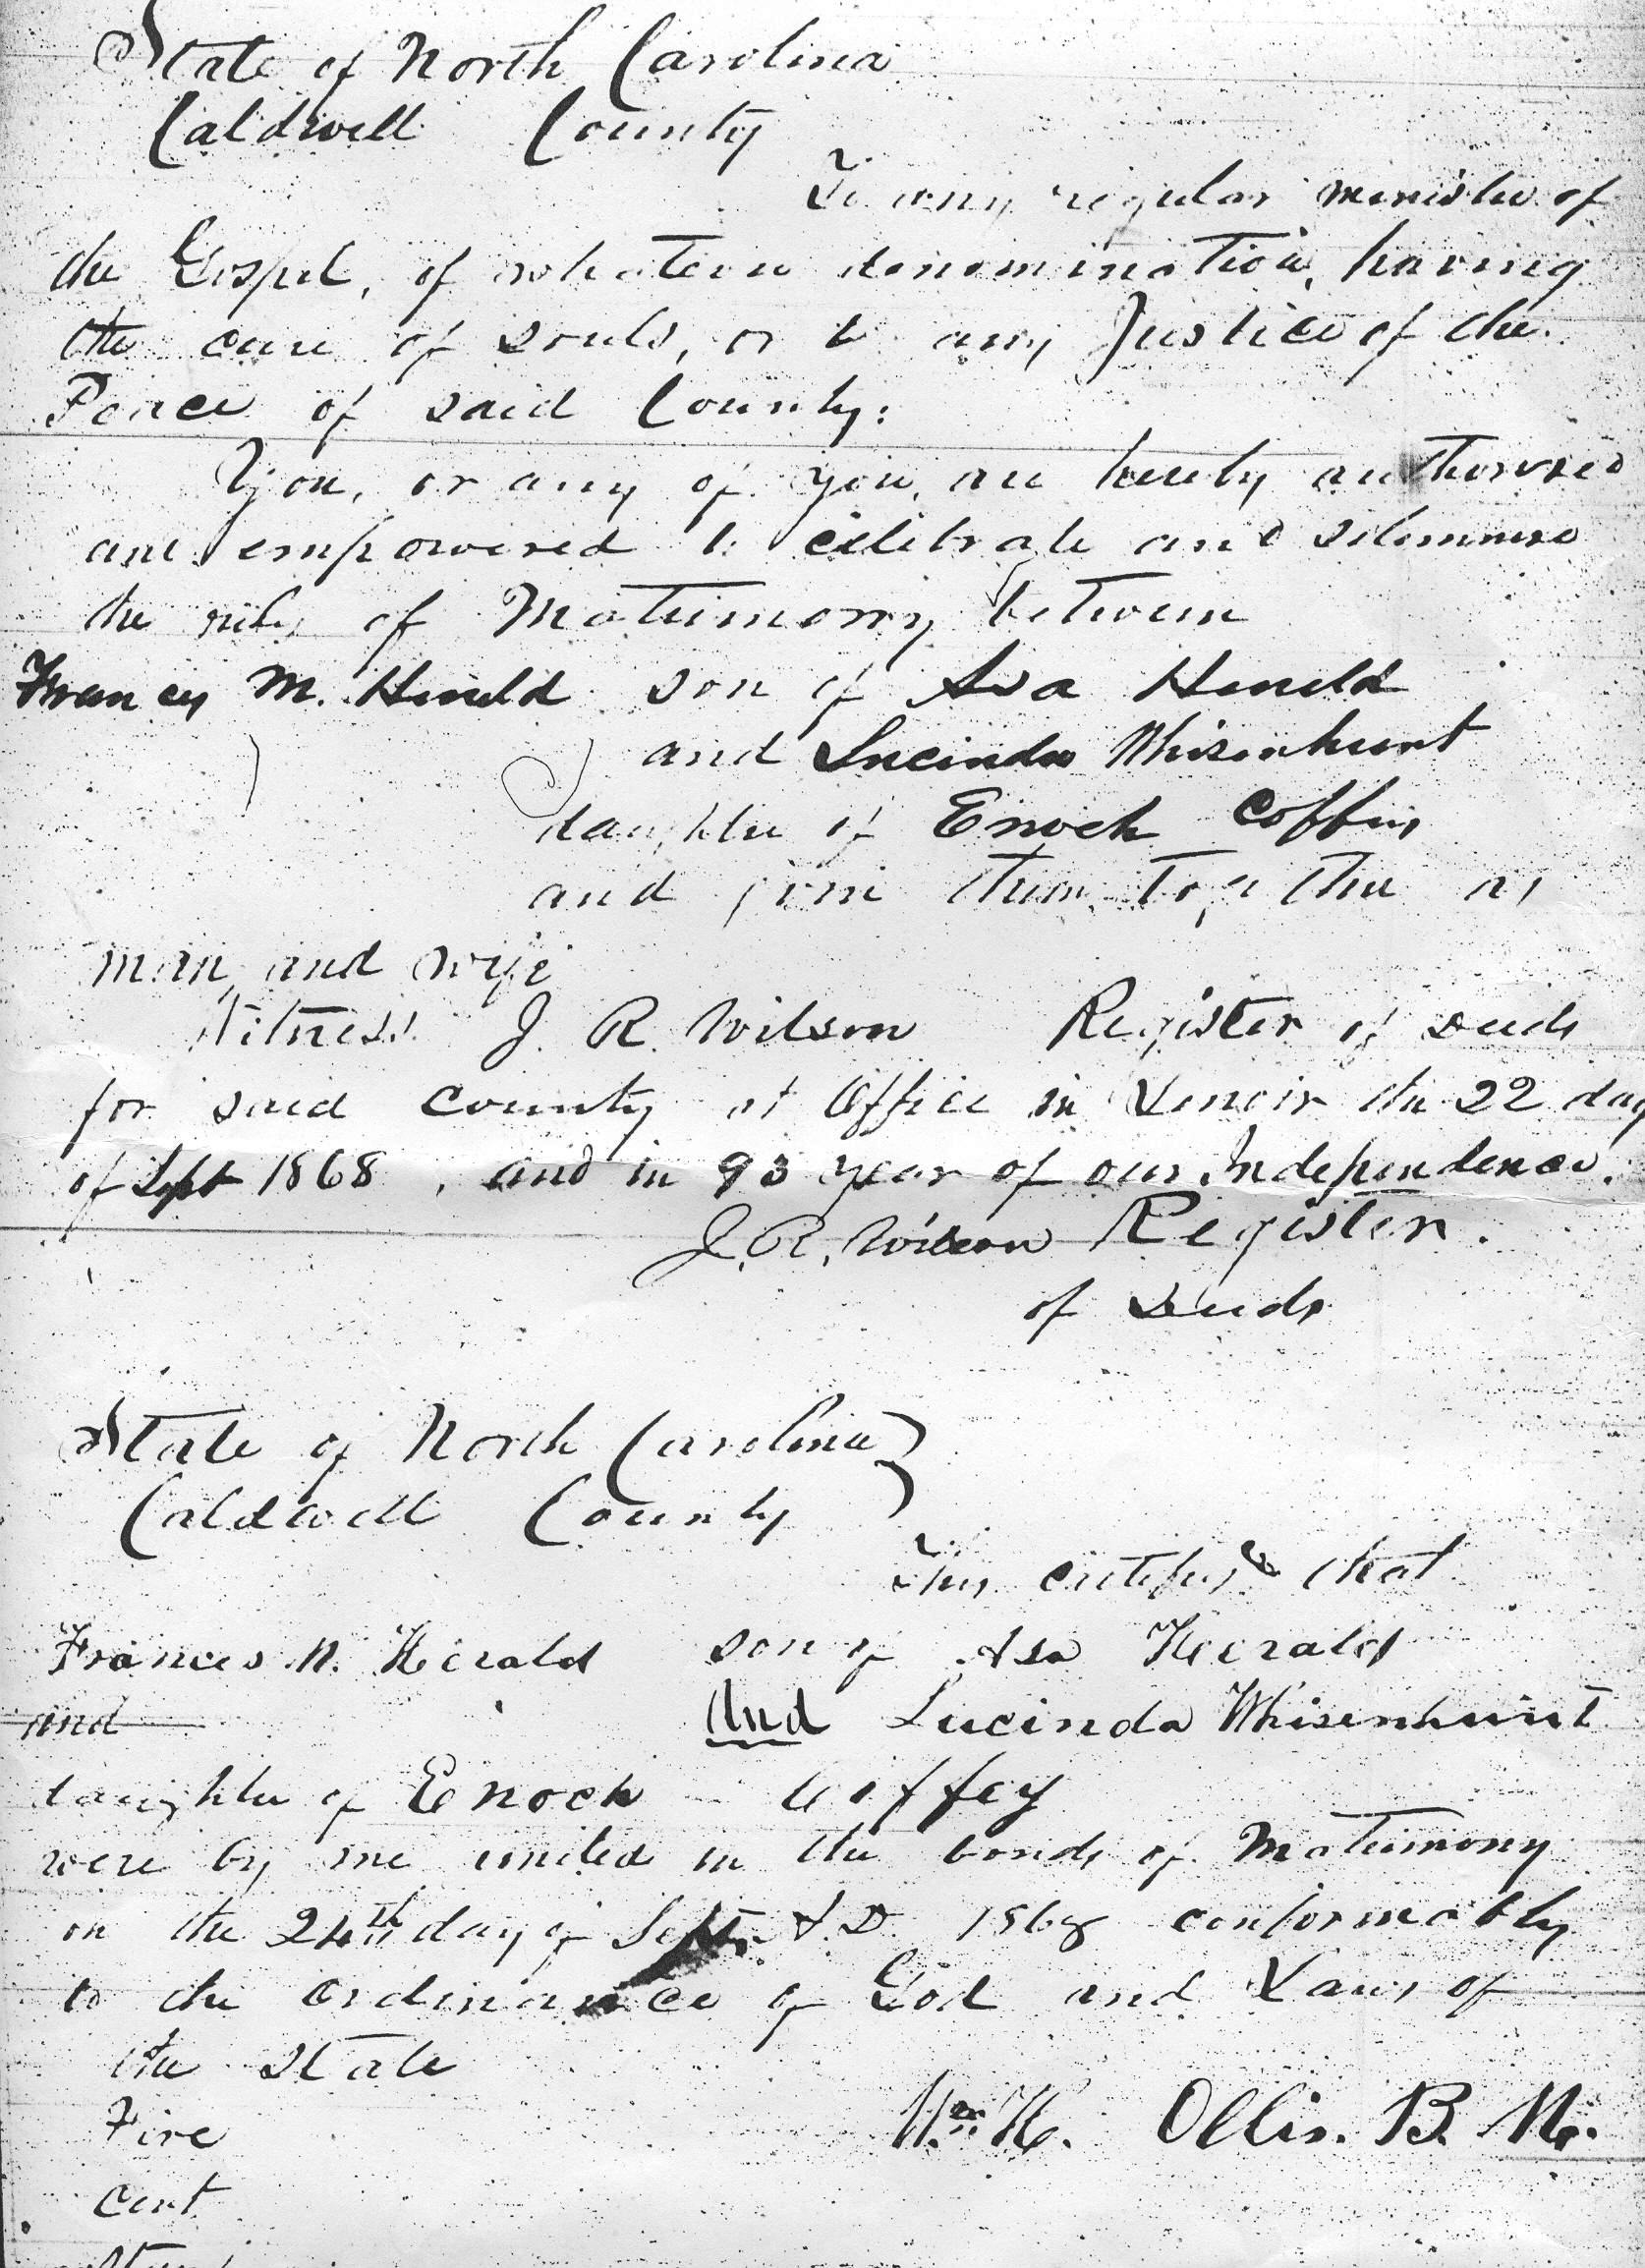 State of North Carolina
Caldwell County
To any regular minister of
the Gospel, of whatever denomination, having
the cure of souls, or to any Justice of the
Peace of said County:
You, or any of you, are hereby authorised
and empowered to celebrate and solemnise
the rites of Matrimony between
Francis M. Herald son of Asa Herald
and Lucinda Whisenhunt
daughter of Enoch Coffey
and join them together as
man and wife
Witness J. R. Wilson Register of Deeds
for said county at Office in Lenoir the 22 day
of Sept 1868, and in 93 year of our Independence.
J. R. Wilson Register
of Deeds
State of North Carolina
Caldwell County
This certifies that
Frances M. Herald son of Asa Herald
and
And Lucinda Whisenhunt
daughter of Enoch Coffey
were by me united in the bonds of Matrimony
on the 24th day of Sept. A.D. 1868 conformably
to the ordinance of God and Laws of
the State
Wm. H. Ollis. B. M.
Five
Cent